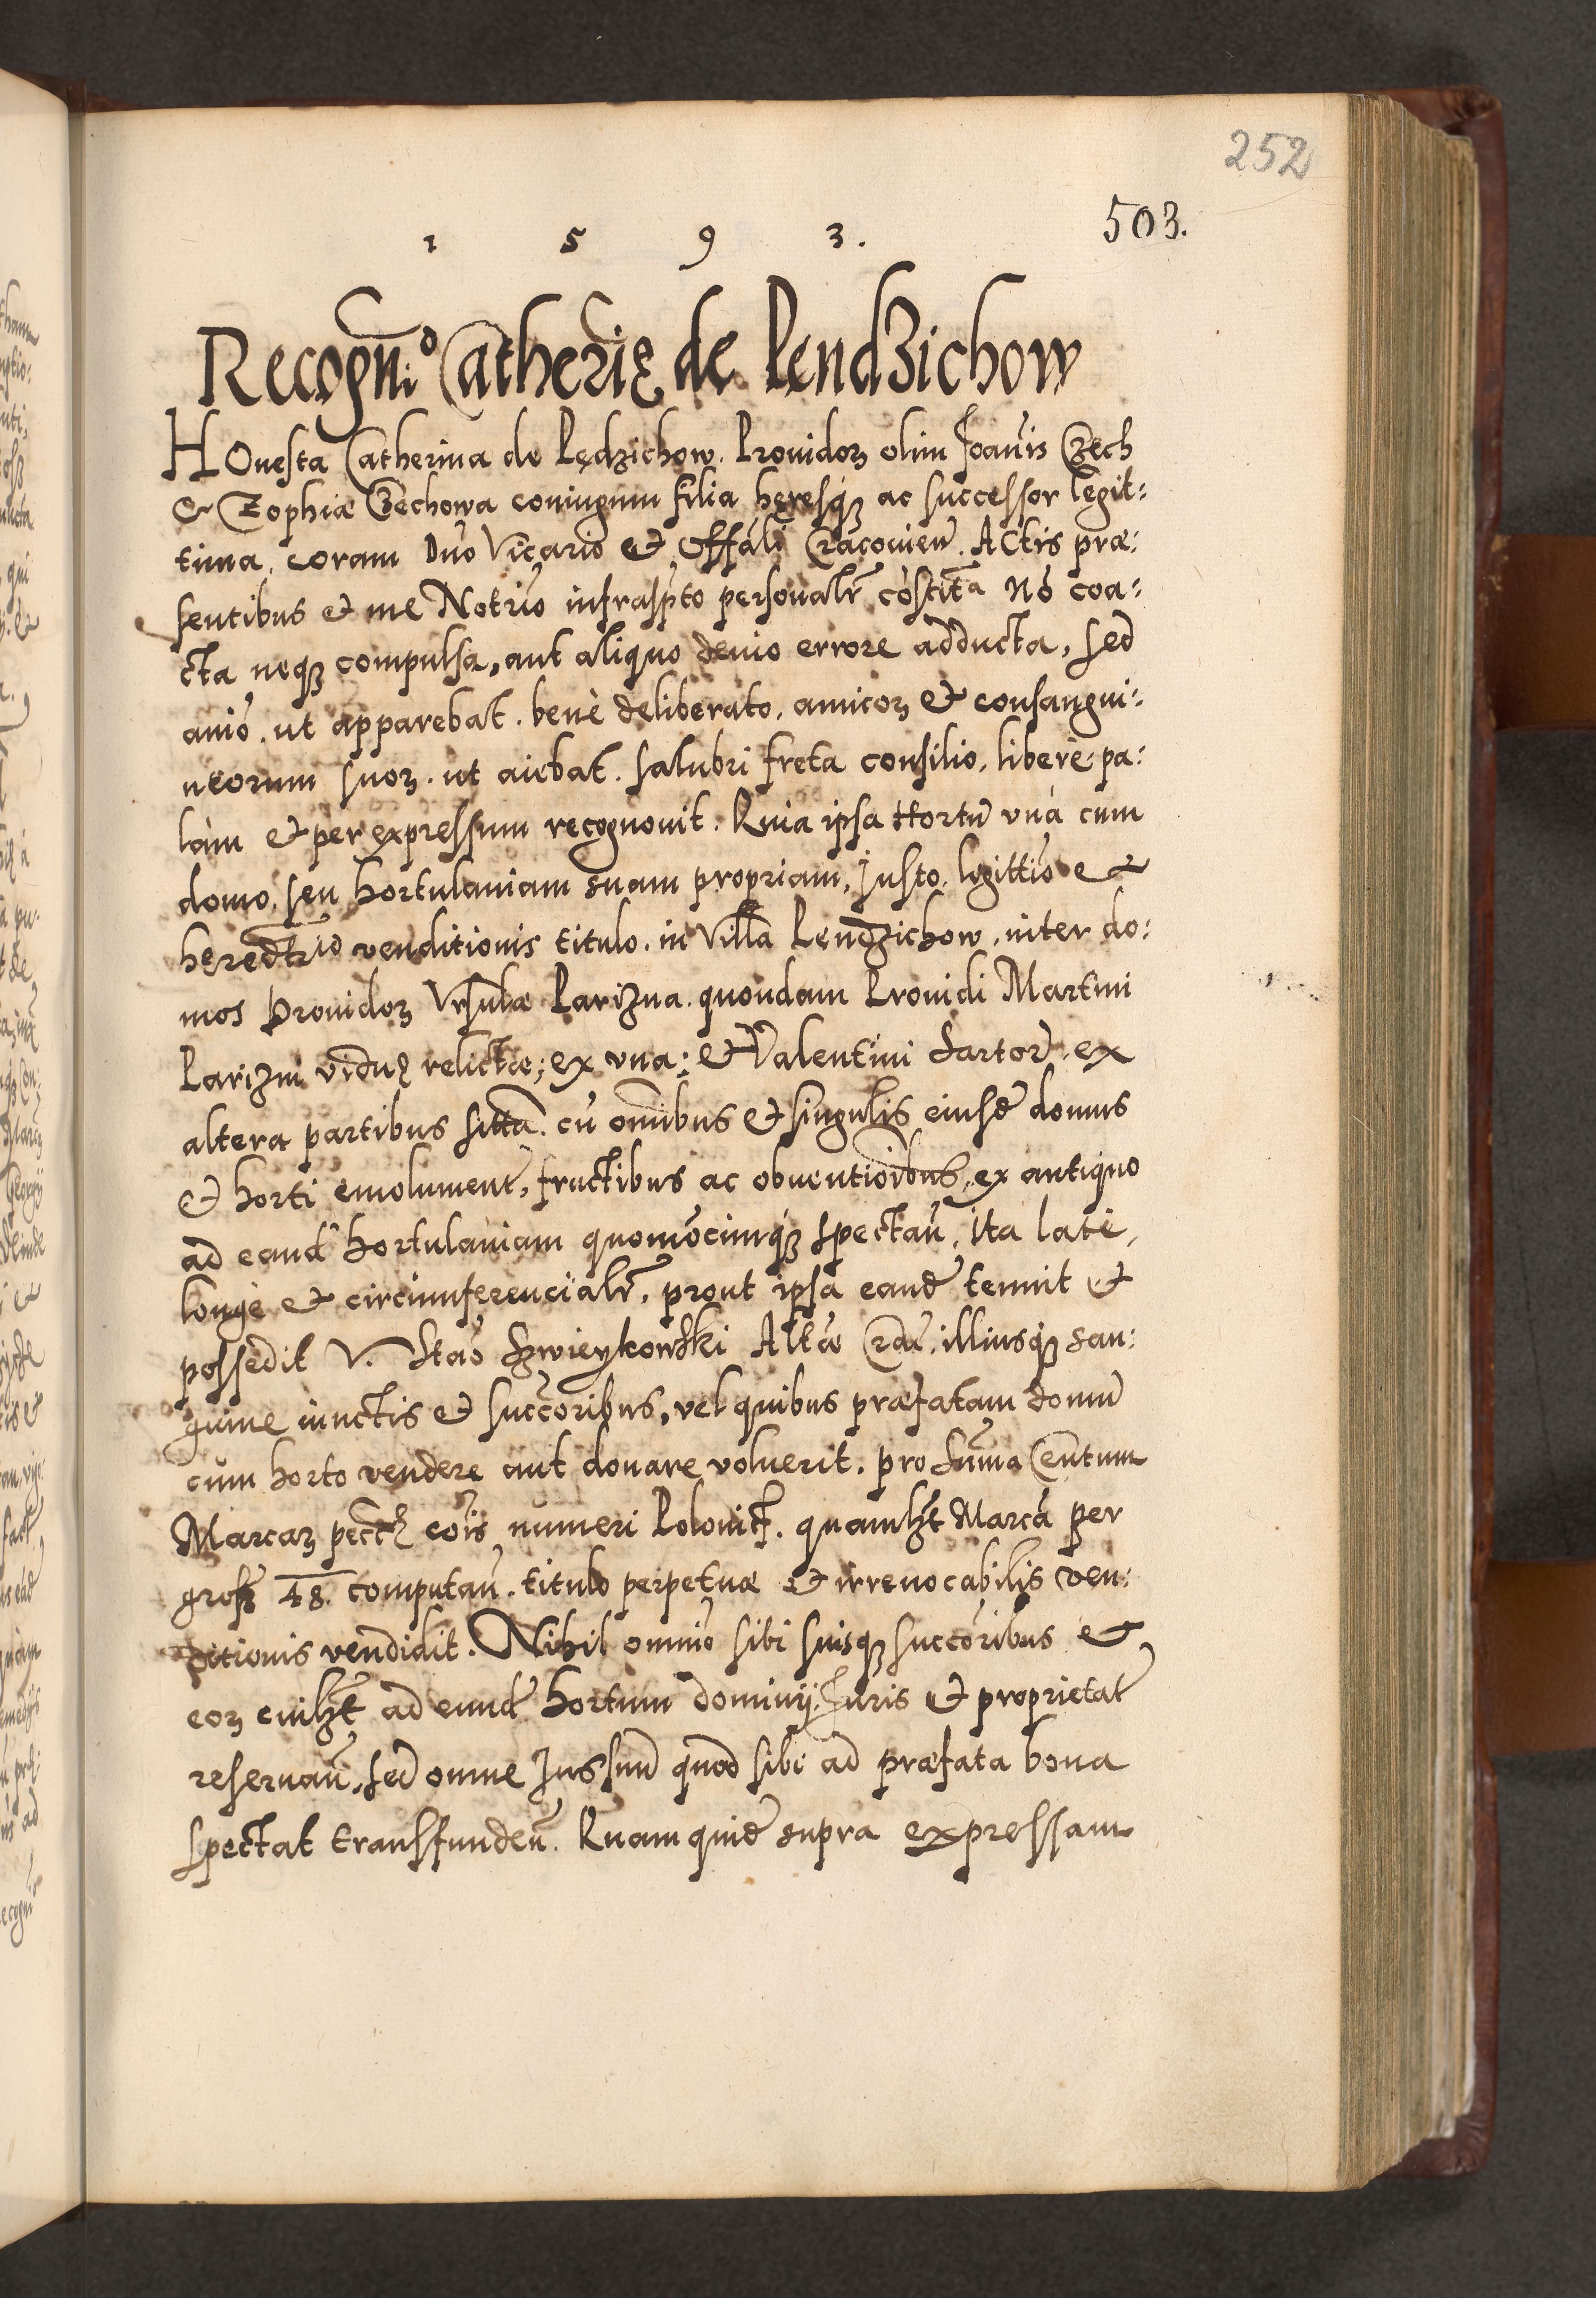 252
503.
1 5 9 3.
Recogñio Catheriñę de Pendzichow
HOnesta Catherina de Pędzichow. Prouidoꝝ olim Joañis Czech
& Zophiæ Czechowa coniugum filia hęresqꝫ ac successor legit:
tima. coram Dño Vicario et Offāli Cracouieñ. Actis præ:
sentibus et me Notrĩo infrasp̃to personalr̃ cõstit̃a nõ coa:
cta neqꝫ compulsa, aut aliquo deuio errore adducta, sed
anĩo. ut apparebat. benè deliberato, amicoꝝ et consangui:
neorum suoꝝ. ut aiebat. salubri freta consilio, liberè pa:
làm et per expressum recognouit. Quia ipsa Hortũ vnà cum
domo, seu hortulaniam suam propriam, justo, legittĩo et
heredtr̃io venditionis titulo. in Villa Pendzichow, inter do:
mos Prouidoꝝ Vrsulæ Parizna. quondam Prouidi Martini
Parizni viduę relictæ; ex vna; et Valentini Sartor̃. ex
altera partibus sittã. cũ oñibus et singulis eiusd̃ domus
et horti emolument̃, fructibus ac obuentioĩbus, ex antiquo
ad eand̃ hortulaniam quomõcũnqꝫ spectañ, ita latè,
longè et circumferencialr̃, prout ipsa eand̃ tenuit et
possedit V. Stañ Szwieykowski Altæ Crāe. illiusqꝫ san:
guine iunctis et succõribus, vel quibus præfatam domũ
cum horto vendere aut donare voluerit. pro Sum̃a Centum
Marcaꝝ pecc̃ę cõis numeri Polonicꝭ. quamlꝫt Marcã per
grosꝫ 48. computañ. titulo perpetuæ et irreuocabilis ven:
ditionis vendidit. Nihil omnĩo sibi suisqꝫ succõribus et
eoꝝ cuilꝫt ad eund̃ hortum dominij Juris et proprietat̃
reseruañ, sed omne Jus suũ quod sibi ad præfata bona
spectat transfundeñ. Quam quid̃ supra expressam